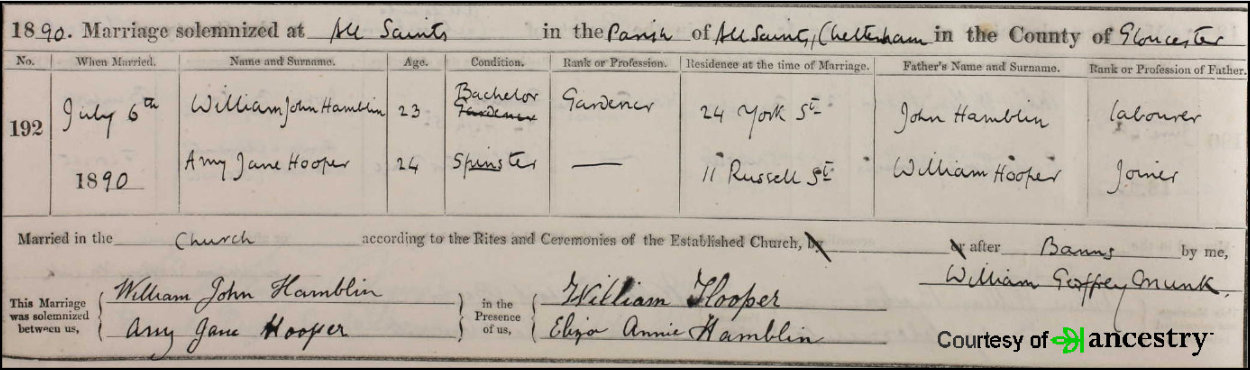 1890. Marriage solemnized at All Saints in the Parish of All Saints, Cheltenham in the County of Gloucester
No. When Married. Name and Surname. Age. Condition. Rank or Profession. Residence at the time of Marriage. Father's Name and Surname. Rank or Profession of Father.
192 July 6th 1890
William John Hamblin 23 Bachelor Gardener Gardener 24 York St John Hamblin labourer
Amy Jane Hooper 24 Spinster — 11 Russell St William Hooper Joiner
Married in the Church according to the Rites and Ceremonies of the Established Church, by or after Banns by me,
William Goffrey Munk.
This Marriage was solemnized between us,
William John Hamblin
Amy Jane Hooper
in the Presence of us,
William Hooper
Eliza Annie Hamblin
Courtesy of ancestry